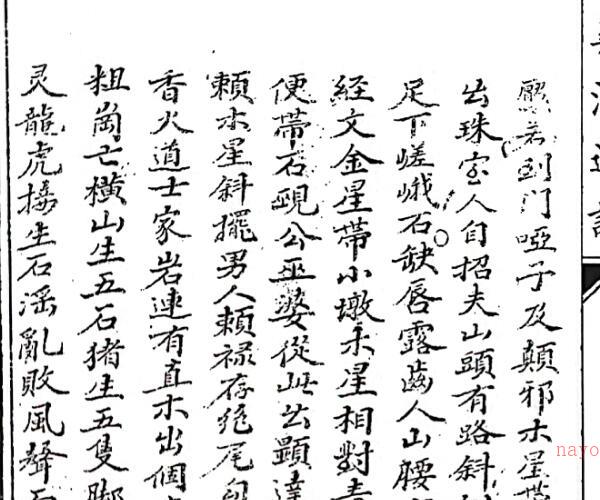 到門啞子及顛邪木星帶
出珠室人自招夫山頭有路斜
足下嵯峨石缺唇露齒人山腰
経文金星帶小墩木星相對
便帶石覡公巫婆從此出顕達
頼木星斜擺男人頼禄存絶尾
香火道士家岩連有直木出個
粗崗亡橫山生五石猪生五隻脚
灵龍虎生石滛亂敗風聲
nayo